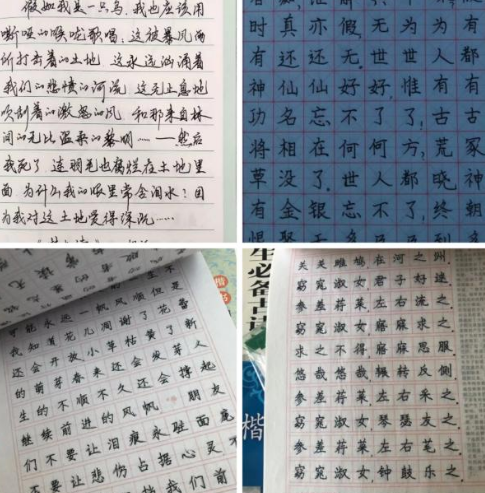 假如我是一只鸟,我也应该用
嘶哑的喉咙歌唱:这被暴风雨
所打击着的土地 这永远汹涌着
我们的悲愤的河流 这无止息地
吹刮着的激怒的风 和那来自林
间的无比温柔的黎明……—然后
我死了 连羽毛也腐烂在土地里
面 为什么我的眼里常含泪水?因
为我对这土地爱得深沉……
时真亦假,无为为有
有还还无.世世人都
神仙仙好好,惟有有
功名忘不了了,古古
将相在何何方,荒冢
草没了.世人都晓神
有金银忘不了,终朝
恨聚无多
可能永远一帆风顺但是
我知道花儿凋谢了花香
还会开放小草枯黄了新
的前芽春来还会发芽人
生的不顺不久还会撑起
继续前进的风帆。朋友
们不要让泪痕永驻面庞
不要让悲伤占据心灵不
我们前
生必备古诗
楷
关关雎鸠,在河之洲
窈窕淑女,君子好逑.
参差荇菜,左右流之.
窈窕淑女,寤寐求之.
求之不得,寤寐思服.
悠哉悠哉,辗转反侧
参差荇菜,左右采之.
窈窕淑女,琴瑟友之.
参差荇菜,左右芼之.
窈窕淑女,钟鼓乐之.